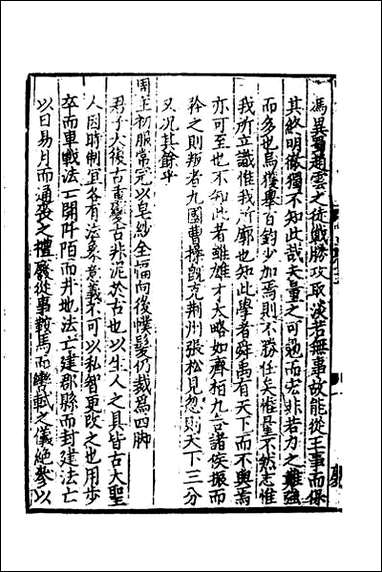 馮異蜀趙雲之徒戰勝攻取淡若無事故能從王事而保
其終明徹獨不知此哉夫量之可勉而宏非若力之難強
而多也烏獲舉百鈞少加焉則不勝任矣惟量不然志惟
我所立識惟我所廓也知此學者舜禹有天下而不與焉
亦可至也不知此者雖雄才大略如齊桓九合諸侯振而
矜之則叛者九國曹操既克荆州張松見忽則天下三分
又况其餘乎
周主初服常冠以皂紗全幅向後幞髮仍裁爲四脚
君子大復古重變古非泥於古也以生人之具皆古大聖
人因時制宜各有法象意義不可以私智更改之也用步
卒而車戰法亡開阡陌而井地法亡建郡縣而封建法亡
以日易月而通喪之禮廢從事鞍馬而轡軾之儀絶參以